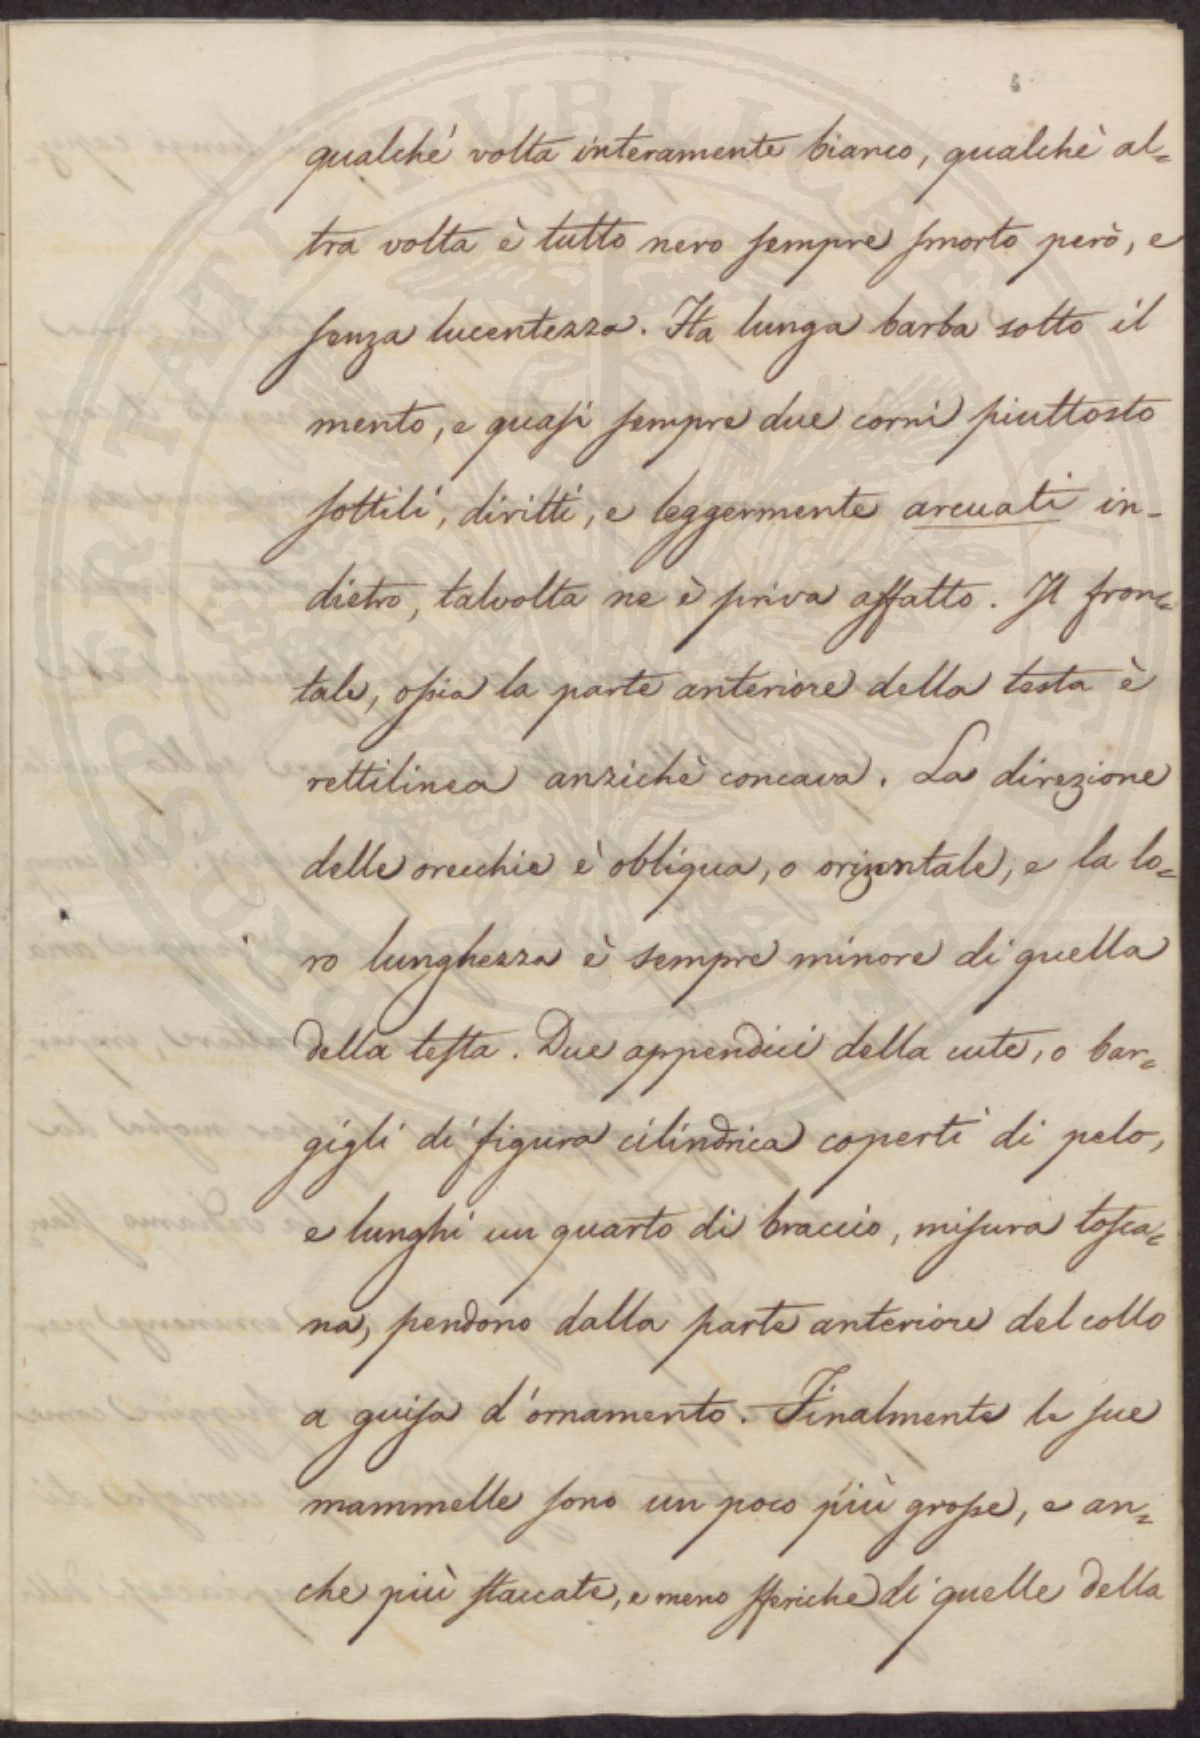 qualchè volta interamente bianco, qualchè al=
tra volta è tutto nero sempre smorto però, e
senza lucentezza. Ha lunga barba sotto il
mento, e quasi sempre due corni piuttosto
sottili, diritti, e leggermente arcuati in-
dietro, talvolta ne è priva affatto. Il fron=
tale, ossia la parte anteriore della testa è
rettilinea anzichè concava. La direzione
delle orecchie è obliqua, o orizontale, e la lo=
ro lunghezza è sempre minore di quella
della testa. Due appendici della cute, o bar=
gigli di figura cilindrica coperti di pelo,
e lunghi un quarto di braccio, misura tosca=
na, pendono dalla parte anteriore del collo
a guisa d'ornamento. Finalmente le sue
mammelle sono un poco più grosse, e an=
che più staccate, e meno sferiche di quelle della